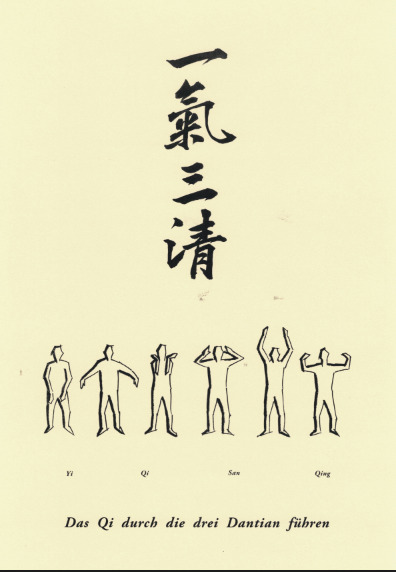 一氣三清
Yi Qi San Qing
Das Qi durch die drei Dantian führen